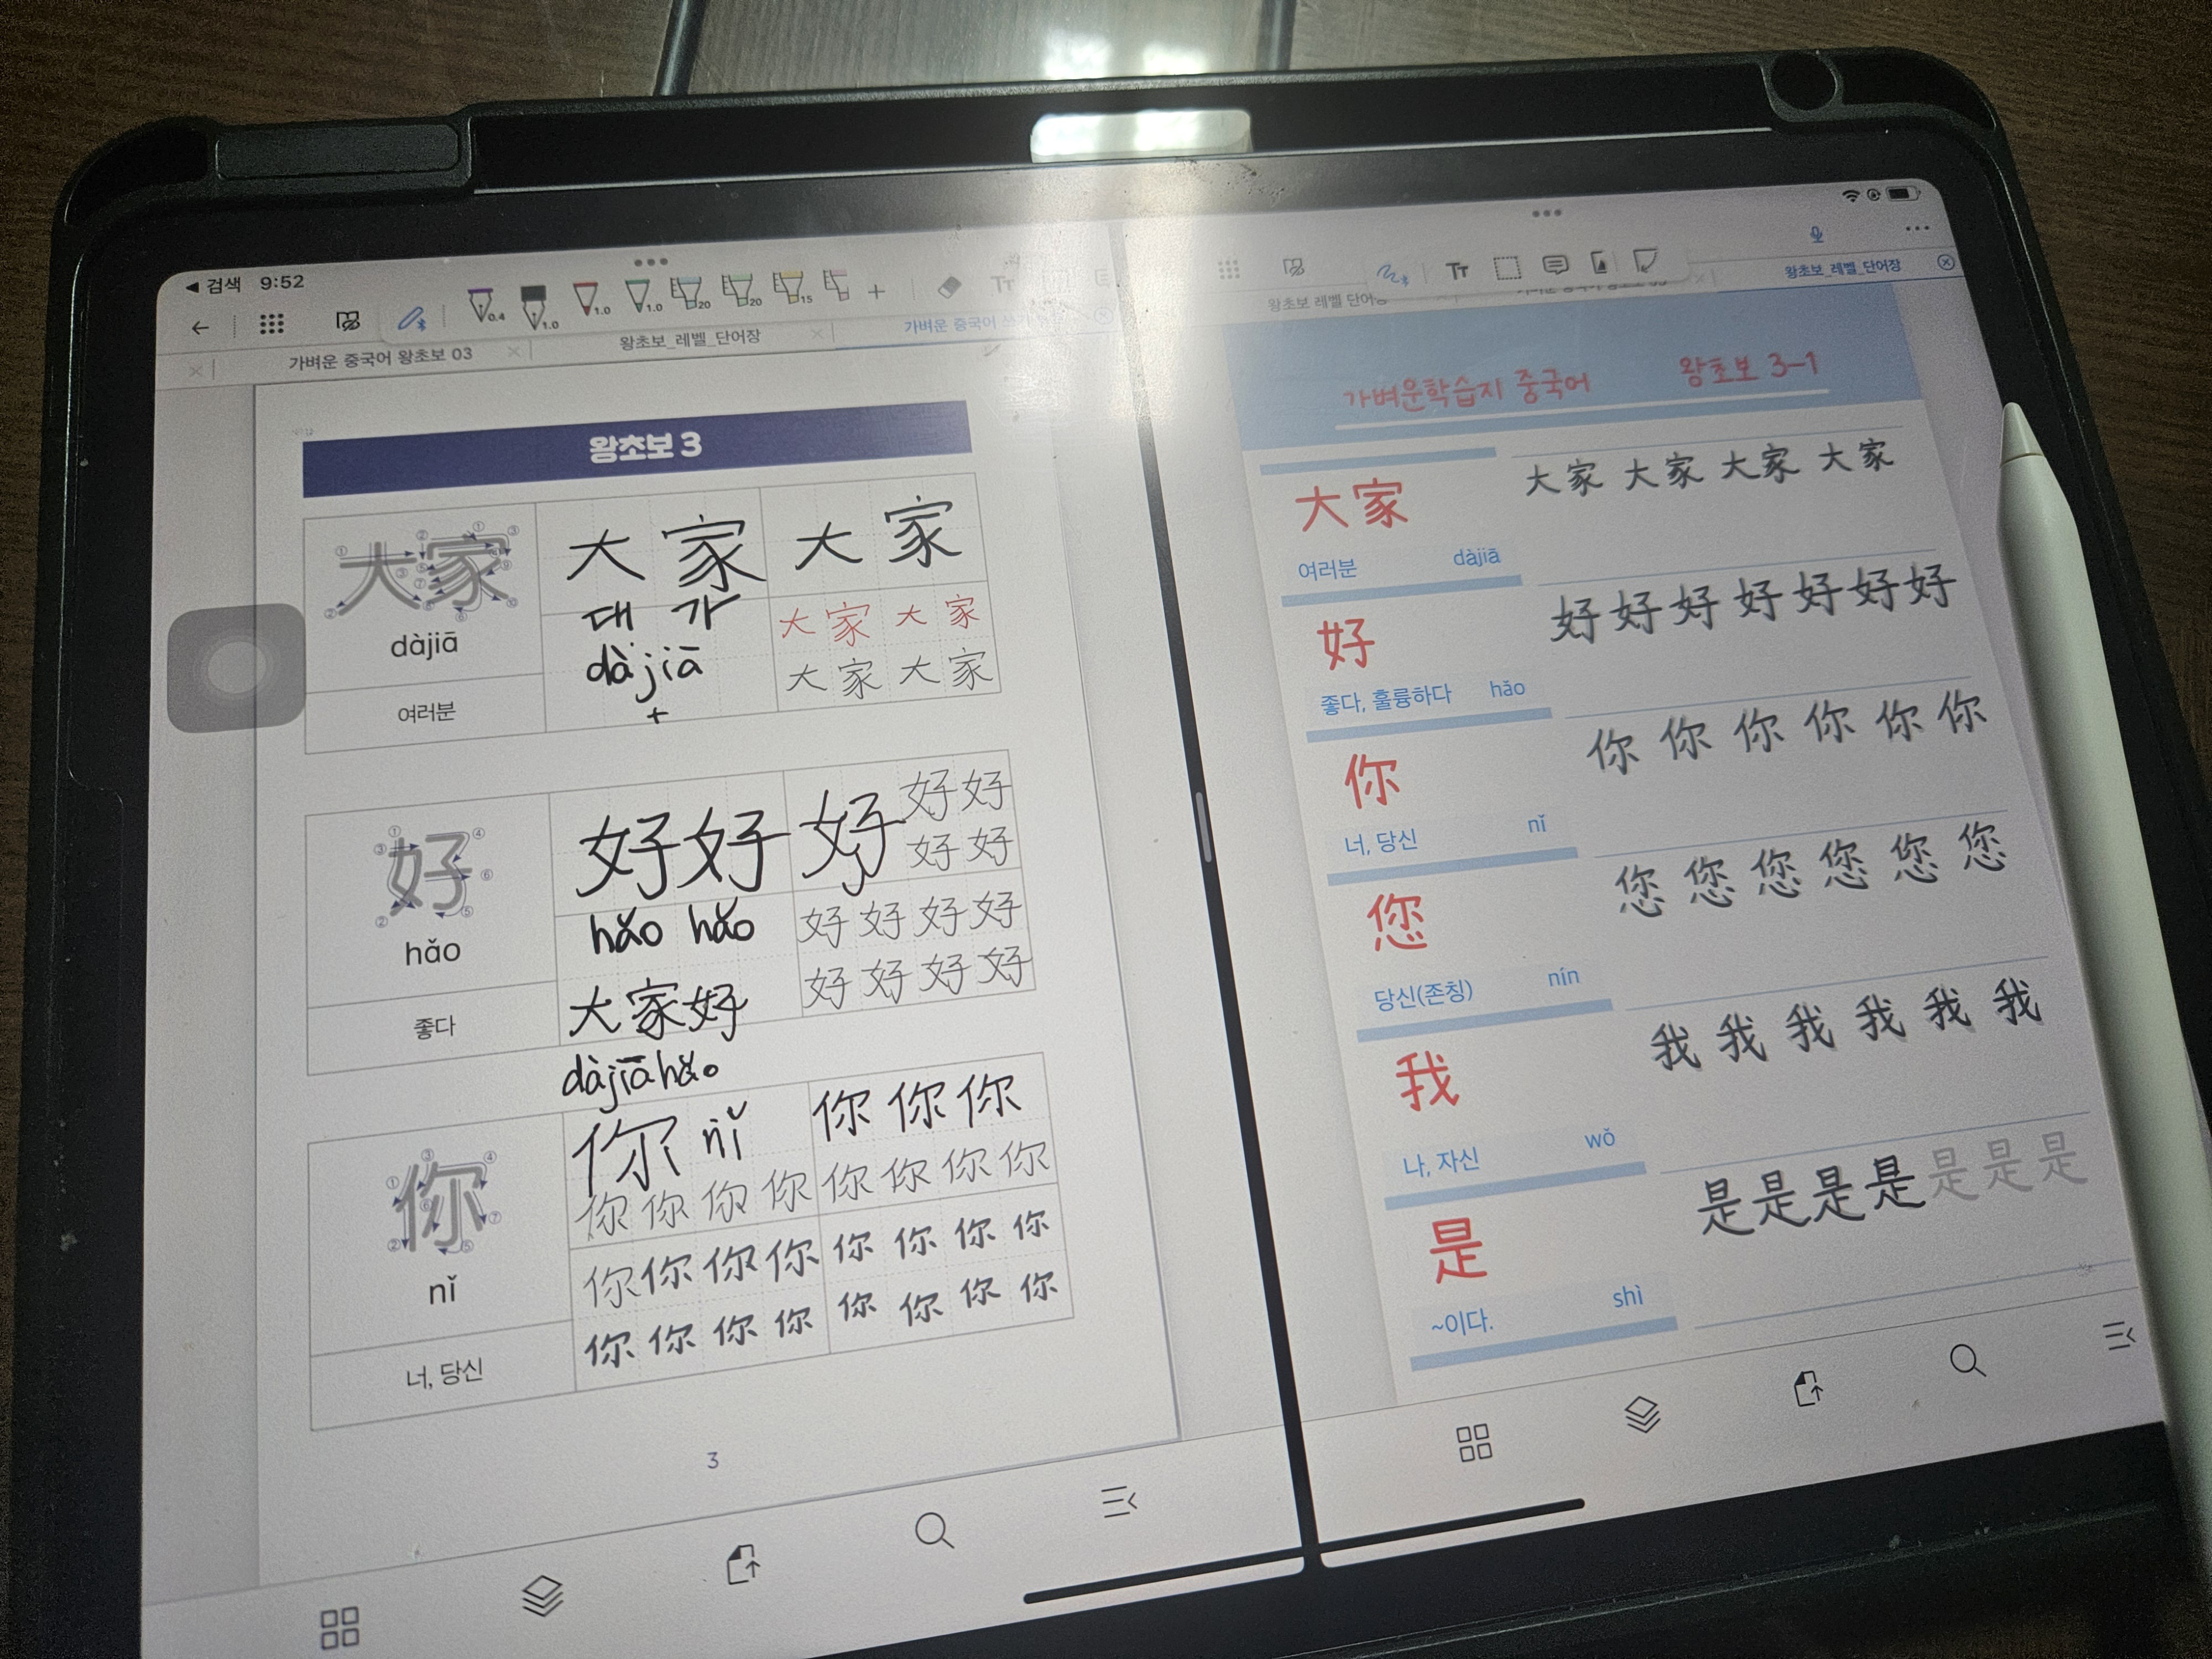 ◀ 검색 9:52
0.4 1.0 1.0 1.0 20 20 15
가벼운 중국어 왕초보 03
왕초보_레벨_단어장
가벼운 중국어
왕초보 3
大家 大家 大家
대가
大家 大家
dàjiā
dàjiā
大家 大家
여러분
好 好好好 好好
好好
hǎo
hǎo hǎo
好好好好
好好好好
좋다
大家好
dàjiāhǎo
你 你 nǐ 你你你
你你你你你你你你
nǐ
你你你你你你你你
你你你你你你你你
너, 당신
3
왕초보 레벨 단어장
왕초보_레벨_단어장
가벼운학습지 중국어 왕초보 3-1
大家 大家 大家 大家 大家
여러분 dàjiā
好 好好好好好好好
좋다, 훌륭하다 hǎo
你 你你你你你你
너, 당신 nǐ
您 您您您您您您
당신(존칭) nín
我 我我我我我我
나, 자신 wǒ
是 是是是是是是是
~이다. shì